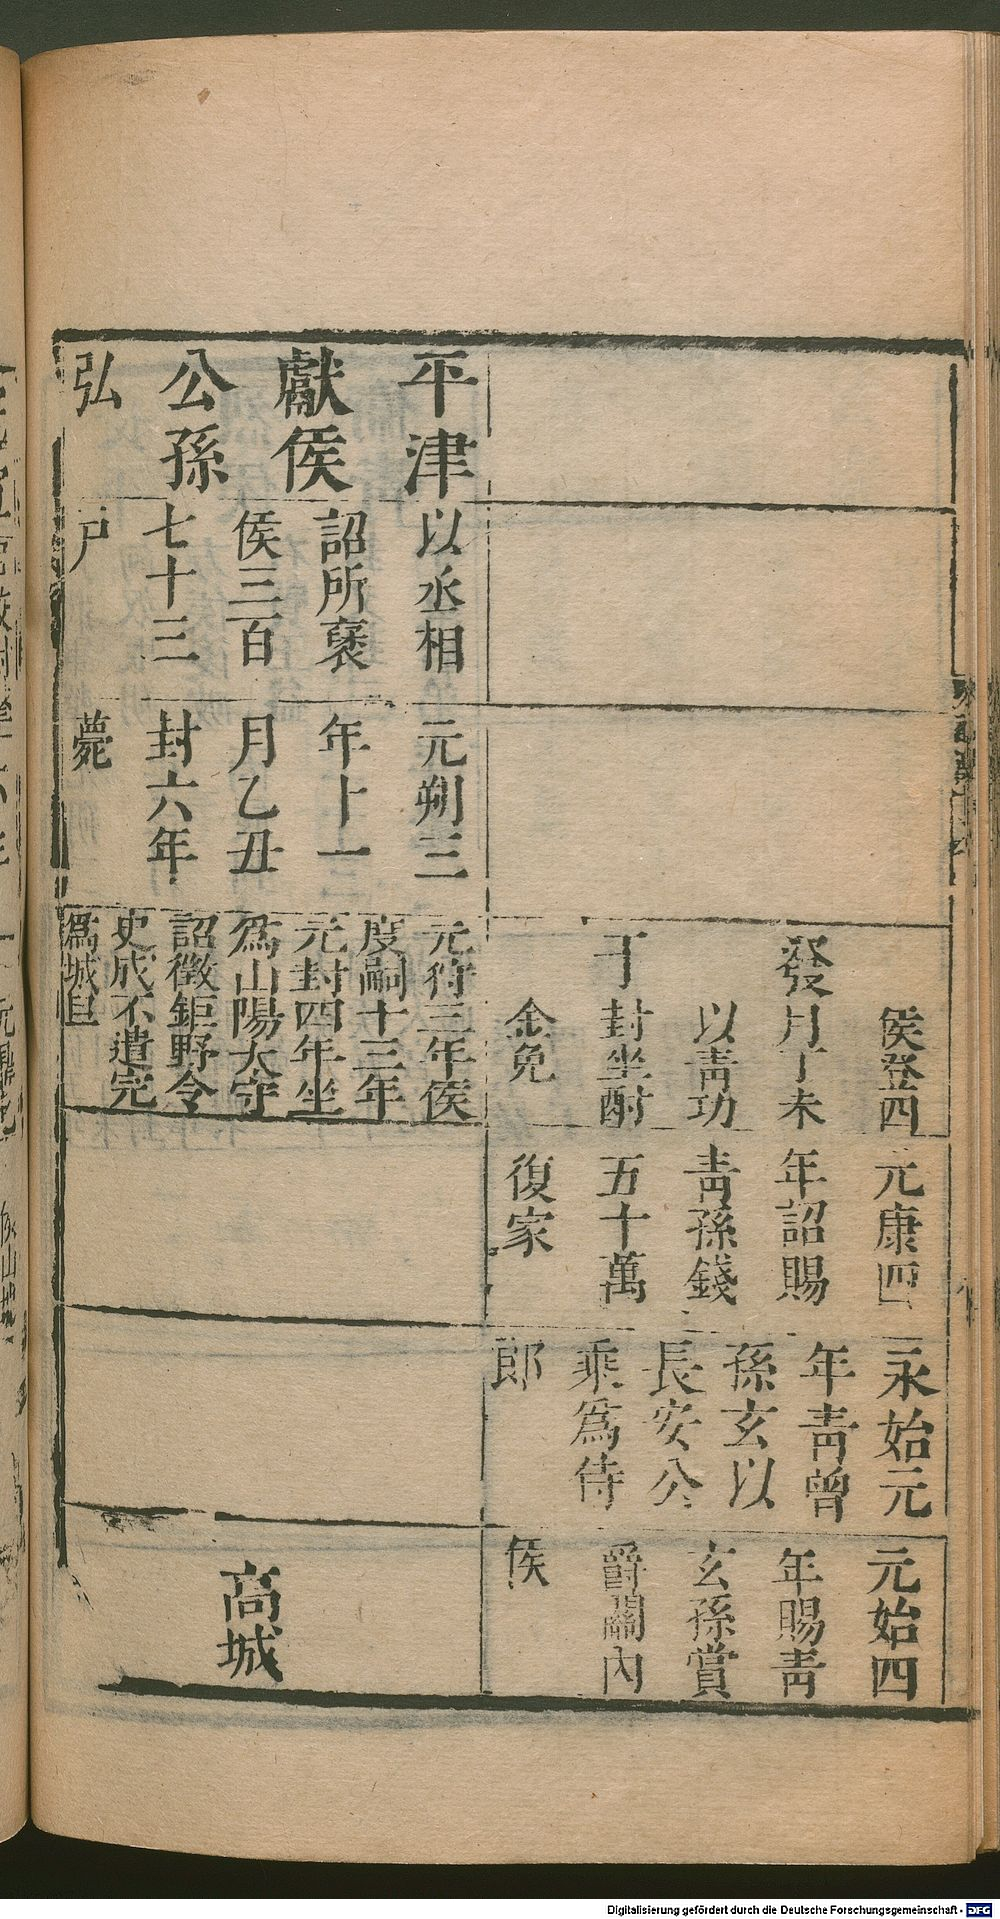 侯登四
發月丁未
以青功
于封坐酎
金免
元康四
年詔賜
青孫錢
五十萬
復家
永始元
年青曾
孫玄以
長安公
乘為侍
郎
元始四
年賜青
玄孫賞
爵關內
侯
平津
獻侯
公孫
弘
以丞相
詔所襃
侯三百
七十三
戶
元朔三
年十一
月乙丑
封六年
薨
元狩三年侯
度嗣十三年
元封四年坐
為山陽太守
詔徵鉅野令
史成不遣完
為城旦
高城
Digitalisierung gefördert durch die Deutsche Forschungsgemeinschaft - DFG